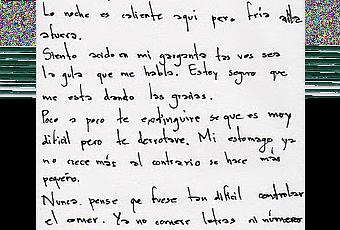 La noche es caliente aqui pero fria alla
afuera.
Siento acido en mi garganta tal vez sea
la gula que me habla. Estoy seguro que
me esta dando las gracias.
Poco a poco te extinguire se que es muy
dificil pero te derrotare. Mi estomago ya
no crece más al contrario se hace más
pequeño.
Nunca pense que fuese tan dificil controlar
el comer. Ya no comere letras ni números